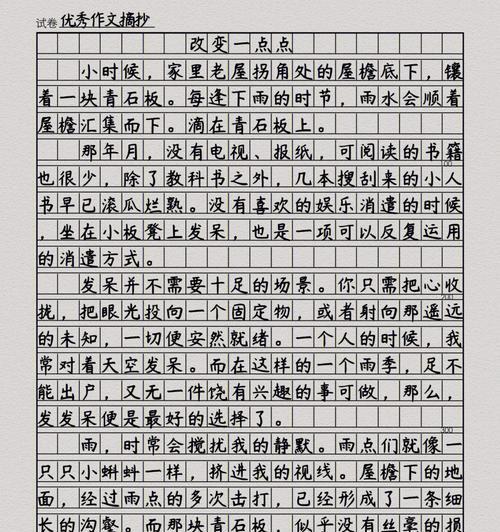 试卷 优秀作文摘抄
改变一点点
小时候，家里老屋拐角处的屋檐底下，镶
着一块青石板。每逢下雨的时节，雨水会顺着
屋檐汇集而下。滴在青石板上。
那年月，没有电视、报纸，可阅读的书籍
100
也很少，除了教科书之外，几本搜刮来的小人
书早已滚瓜烂熟。没有喜欢的娱乐消遣的时候
，坐在小板凳上发呆，也是一项可以反复运用
的消遣方式。
发呆并不需要十足的场景。你只需把心收
200
拢，把眼光投向一个固定物，或者射向那遥远
的未知，一切便安然就绪。一个人的时候，我
常对着天空发呆。而在这样的一个雨季，足不
能出户，又无一件饶有兴趣的事可做，那么，
发发呆便是最好的选择了。
300
雨，时常会搅扰我的静默。雨点们就像一
只只小蝌蚪一样，挤进我的视线。屋檐下的地
面，经过雨点的多次击打，已经形成了一条细
长的沟壑。而那块青石板，似乎没有丝毫的损